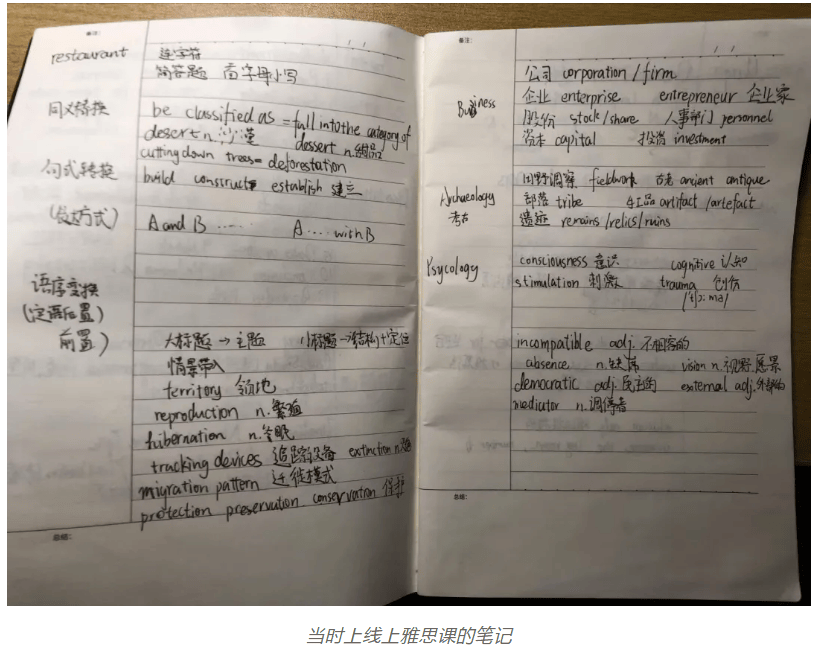 备注:
restaurant 连字符
简答题 首字母小写
同义替换 be classified as = fall into the category of
desert n.沙漠 dessert n.甜品
cutting down trees = deforestation
句式转换 build construct establish 建立
(表达方式) A and B ...... A .... with B
语序变换
(定语后置)
前置) 大标题 → 主题 小标题 → 结构+定位
情景带入
territory 领地
reproduction n.繁殖
hibernation n.冬眠
tracking devices 追踪设备 extinction n.灭绝
migration pattern 迁徙模式
protection preservation conservation 保护
总结:
备注:
公司 corporation / firm
Business 企业 enterprise entrepreneur 企业家
股份 stock/share 人事部门 personnel
资本 capital 投资 investment
田野调察 fieldwork 古老 ancient antique
Archaeology 部落 tribe 手工品 artifact /artefact
考古 遗迹 remains /relics/ruins
Psycology consciousness 意识 cognitive 认知
stimulation 刺激 trauma 创伤
/'trɔ:mə/
incompatible adj. 不相容的
absence n.缺席 vision n.视野.愿景
democratic adj.民主的 external adj.外部的
mediator n.调停者
总结:
当时上线上雅思课的笔记